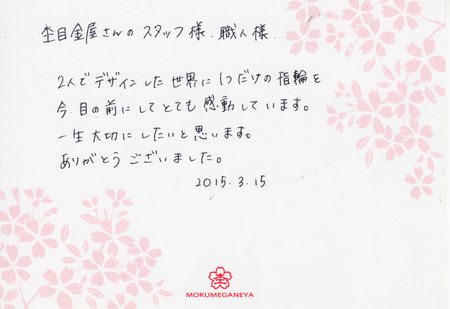 杢目金屋さんのスタッフ様.職人様.
2人でデザインした世界に1つだけの指輪を
今.目の前にしてとても感動しています。
一生大切にしたいと思います。
ありがとうございました。
2015.3.15
杢
MOKUMEGANEYA